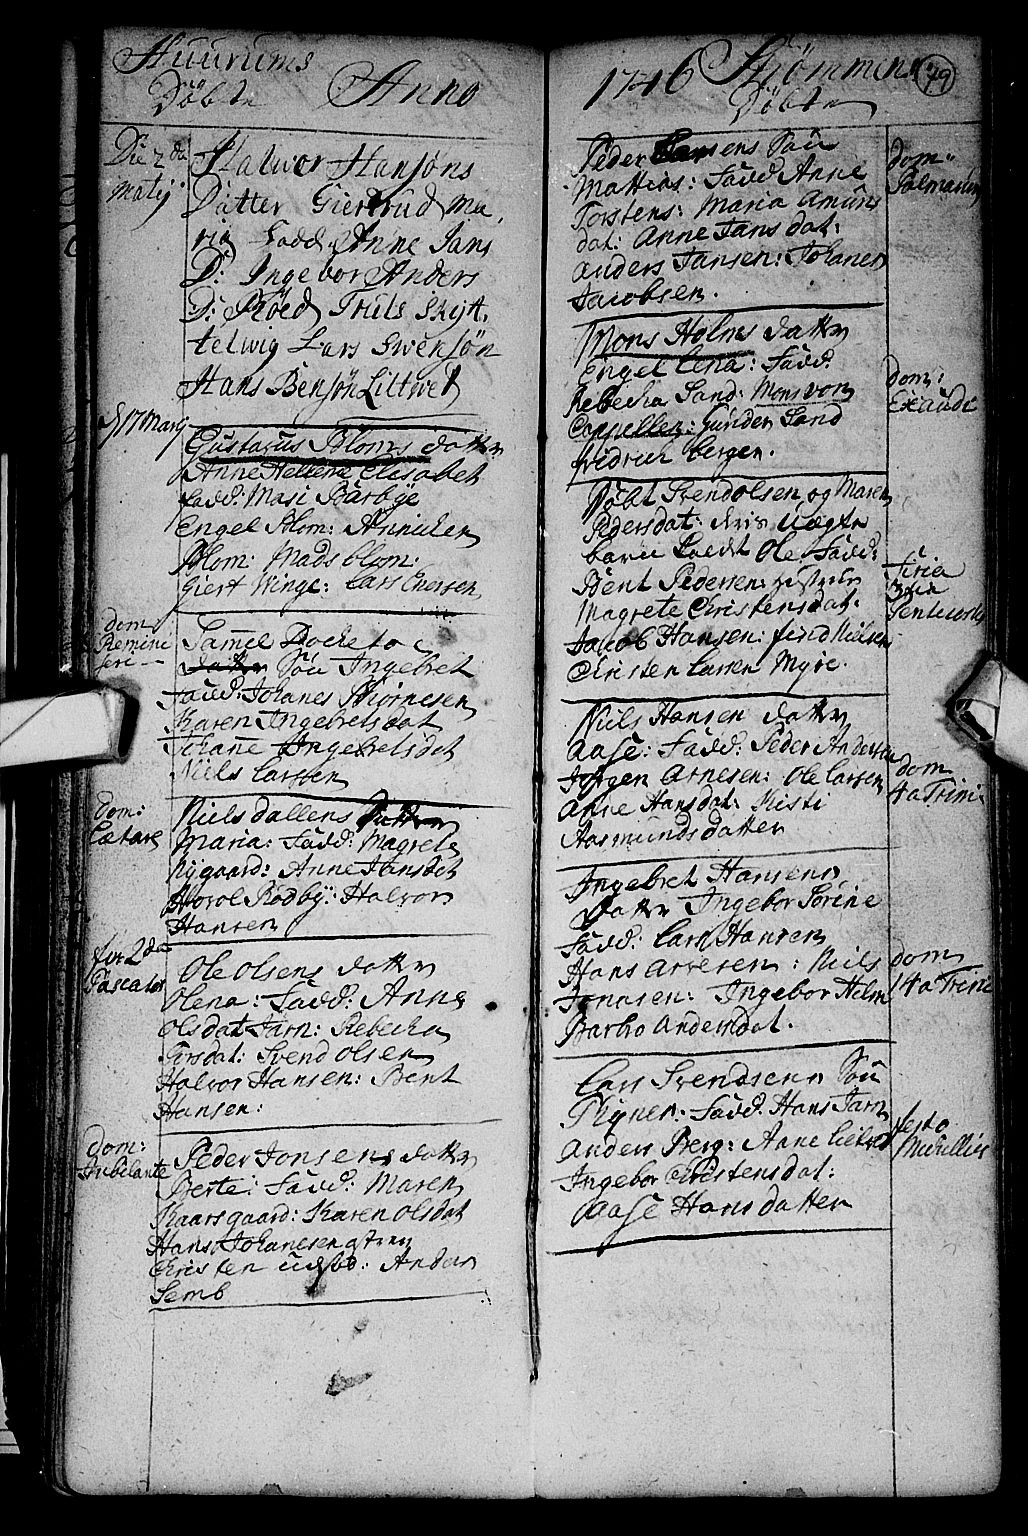 Huurums
Döbte
Anno
Die 2 da
Matij
Halvor Hansöns
Datter Giertrud Ma
ria Fadd. Anne Jans
D: Ingebor Anders
D: Röed Truls Skÿtt.
telwig Lars Swensön
Hans Bensön Littved
17 Marg
Gustavus Bloms dattr
Anne Hellene Elisabet
fadd: Masi Barbye
Engel Blom: Annichen
Blom: Mads blom:
Giert Winge: Lars Everson
dom
Remini
sere
Samel Docke
dattr Sön Ingebret
Fadd: Johanes Thornesen
Karen Ingebretsdat
Johane Ingebretsdat
Niels Larsen
dom:
Lætare
Niels dallens Dattr
Maria: Fadd: Magrete
Nygaard: Anne Hansdat
Rodby: Halvor
Hansen
fer 2da
Pascatos
Ole Olsens dattr
Olena: Fadd: Anne
Olsdat Jarn: Rebecha
Torsdat: Svend Olsen
Halvor Hansen: Bent
Hansen:
dom:
Jubelante
Peder Jonsens dattr
Berte: Fadd: Maren
Kaarsgaard: Karen Olsdat
Hans Johanesen
Christen Udsöd: Anders
Semb
1746 Strömmen
79
Döbte
Peder Larsens Sön
Mattias: Fadd Anne
Torstens: Maria Amuns
dat: Anne Jans dat:
Anders Jansen: Johanes
Jacobsen.
dom
Palmarum
Mons Holms dattr
Engel Lena: Fadd.
Rebecha Sand: Mons von
Cappellen: Gunder Sand
fridrich bergen.
dom:
Exaudi
Döbt Svend Olsen og Maren
Pedersdat: dris Uægte
barn kaldt Ole Fadd:
Bent Pedersen:
Magrete Christensdat.
Jacob Hansen: find Nielsen
Christen Larsen Myre.
Firia
Pentecost
Niels Hansen dattr
Aase: Fadd: Peder Andersen
Jörgen Arnesen: Ole Larsen
Anne Hansdat: Kisti
Aasmundsdatter
dom
4 a Trini
Ingebret Hansens
Dattr Ingebor Sörine
Fadd: Lars Hansen
Hans Arvesen: Niels
Jonasen: Ingebor Helm
Barbo Andersdat.
dom
14 a Trini
Lars Svendsens Sön
Thynes: Fadd. Hans Jarn
Anders Berg: Anne Lietved
Ingebor Christensdat:
Aase Hansdatter
festo
Michilis